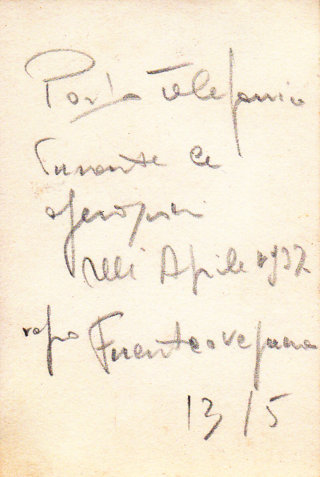 Posto Telefonico
durante le
operazioni
Aprile 1937
verso Fuenteovejuna
13/5